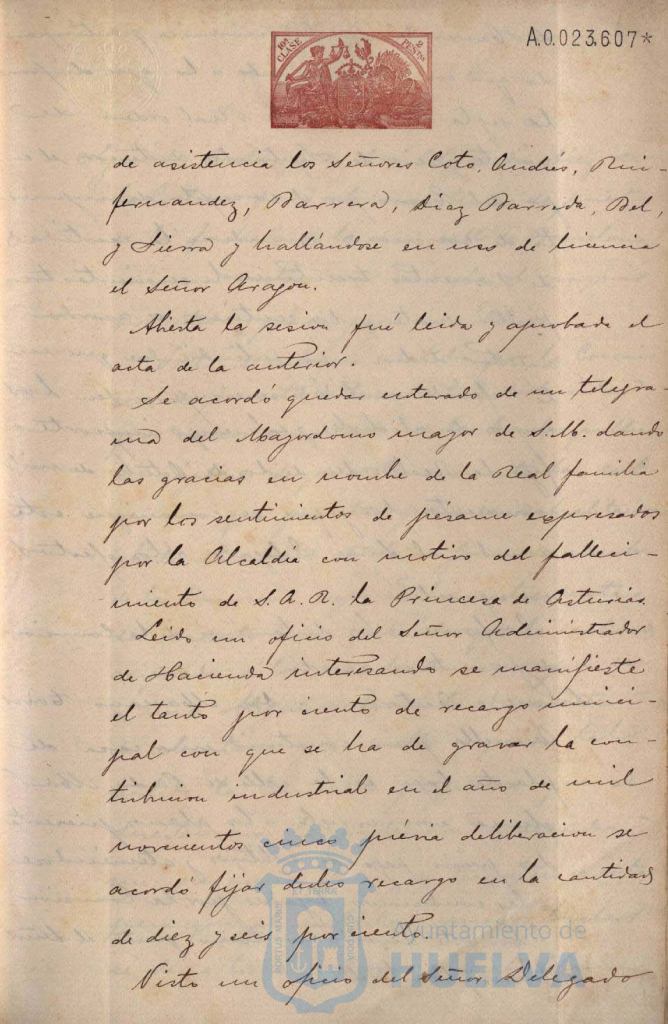 10ª CLASE
2 PESTAS
A.0.023.607*
de asistencia los Señores Coto, Andrés, Rui-
fernandez, Barrera, Diaz Barreda, Bel,
y Sierra y hallándose en uso de licencia
el Señor Aragon.
Abierta la sesion fué leida y aprobada el
acta de la anterior.
Se acordó quedar enterado de un telegra-
ma del Mayordomo mayor de S.M. dando
las gracias en nombre de la Real familia
por los sentimientos de pésame expresados
por la Alcaldía con motivo del falleci-
miento de S.A.R. la Princesa de Asturias.
Leido un oficio del Señor Administrador
de Hacienda interesando se manifieste
el tanto por ciento de recargo munici-
pal con que se ha de gravar la con-
tribucion industrial en el año de mil
novecientos cinco prévia deliberacion se
acordó fijar dicho recargo en la cantidad
de diez y seis por ciento.
Visto un oficio del Señor Delegado
Ayuntamiento de
HUELVA